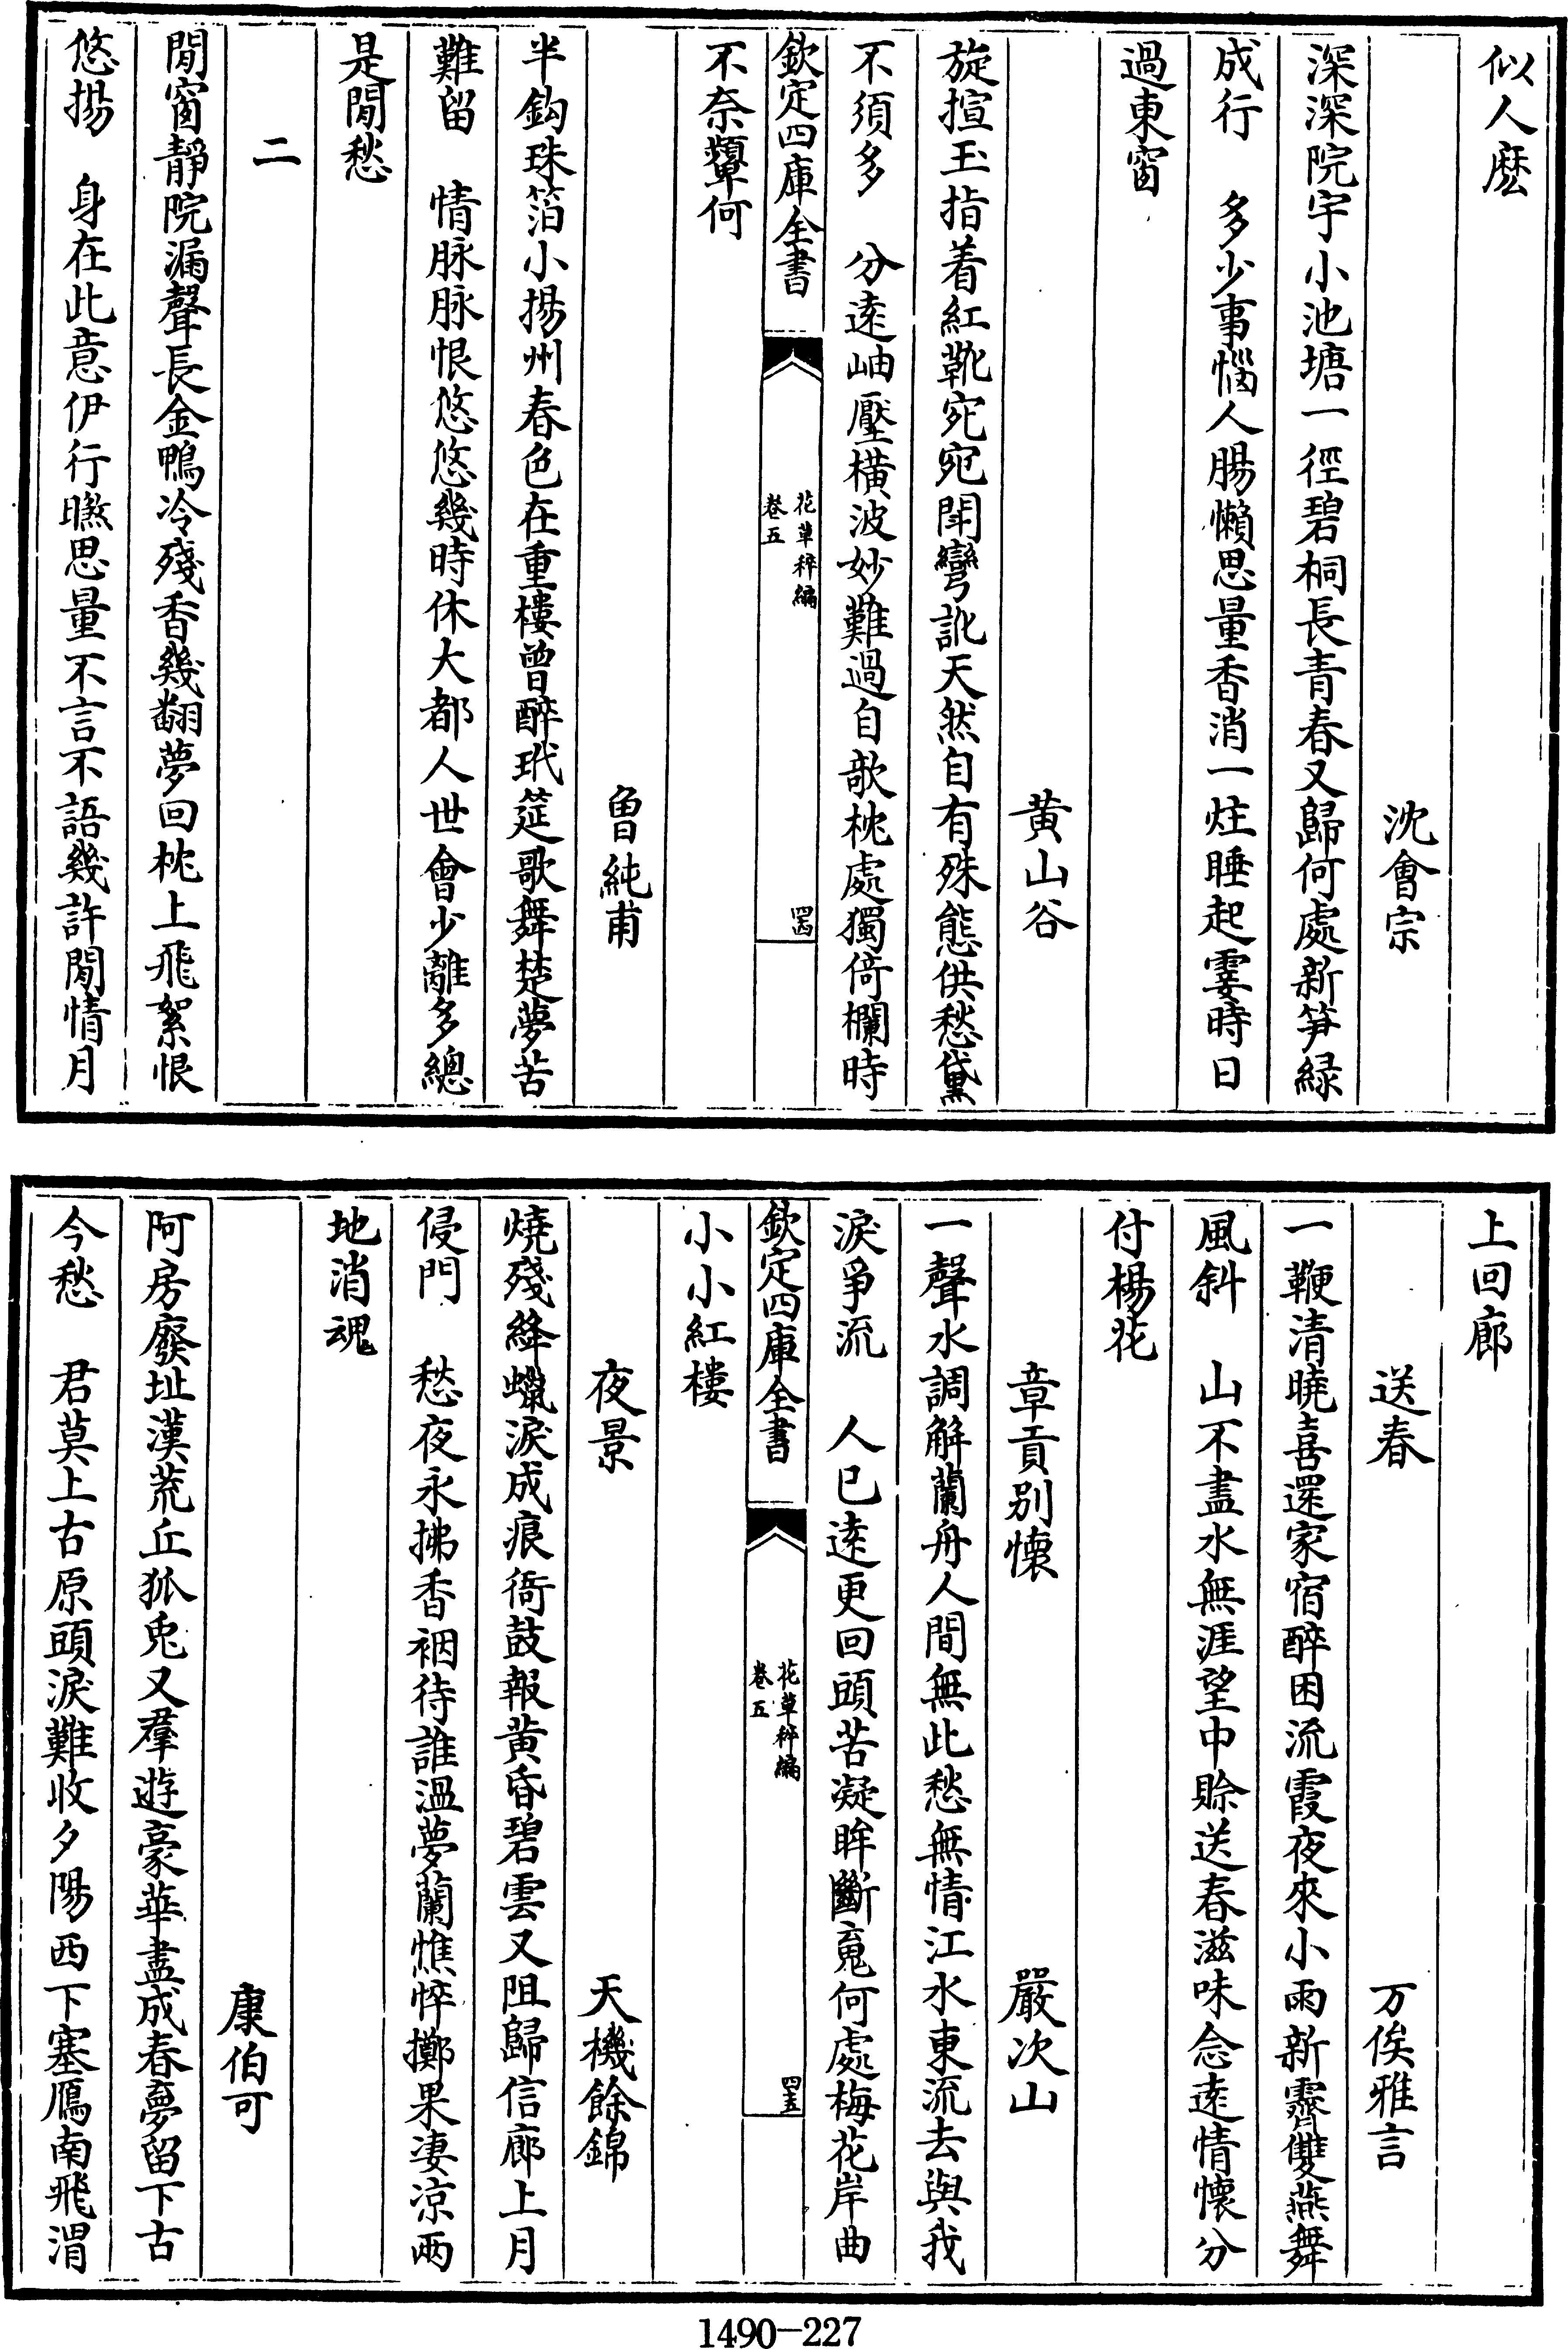 似人麽
沈會宗
深深院宇小池塘一徑碧桐長青春又歸何處新笋緑
成行　多少事惱人腸懶思量香消一炷睡起霎時日
過東窗
黄山谷
旋揎玉指着紅靴宛宛鬭彎訛天然自有殊態供愁黛
不須多　分逺岫壓横波妙難過自欹枕處獨倚欄時
欽定四庫全書
花草稡編
卷五
四四
不奈顰何
魯純甫
半鈎珠箔小揚州春色在重樓曾醉玳筵歌舞楚夢苦
難留　情脉脉恨悠悠幾時休大都人世會少離多總
是閒愁
二
閒窗靜院漏聲長金鴨冷殘香幾翻夢回枕上飛絮恨
悠揚　身在此意伊行瞧思量不言不語幾許閒情月
上回廊
送春　万俟雅言
一鞭清曉喜還家宿醉困流霞夜來小雨新霽雙燕舞
風斜　山不盡水無涯望中賖送春滋味念逺情懷分
付楊花
章貢别懷　嚴次山
一聲水調解蘭舟人間無此愁無情江水東流去與我
淚爭流　人已逺更回頭苦凝眸斷䰟何處梅花岸曲
欽定四庫全書
花草稡編
卷五
四五
小小紅樓
夜景　天機餘錦
燒殘絳蠟淚成痕衙鼓報黄昏碧雲又阻歸信廊上月
侵門　愁夜永拂香裀待誰溫夢蘭憔悴擲果淒凉兩
地消魂
康伯可
阿房廢址漢荒丘狐兎又羣遊豪華盡成春夢留下古
今愁　君莫上古原頭淚難收夕陽西下塞鴈南飛渭
1490－227